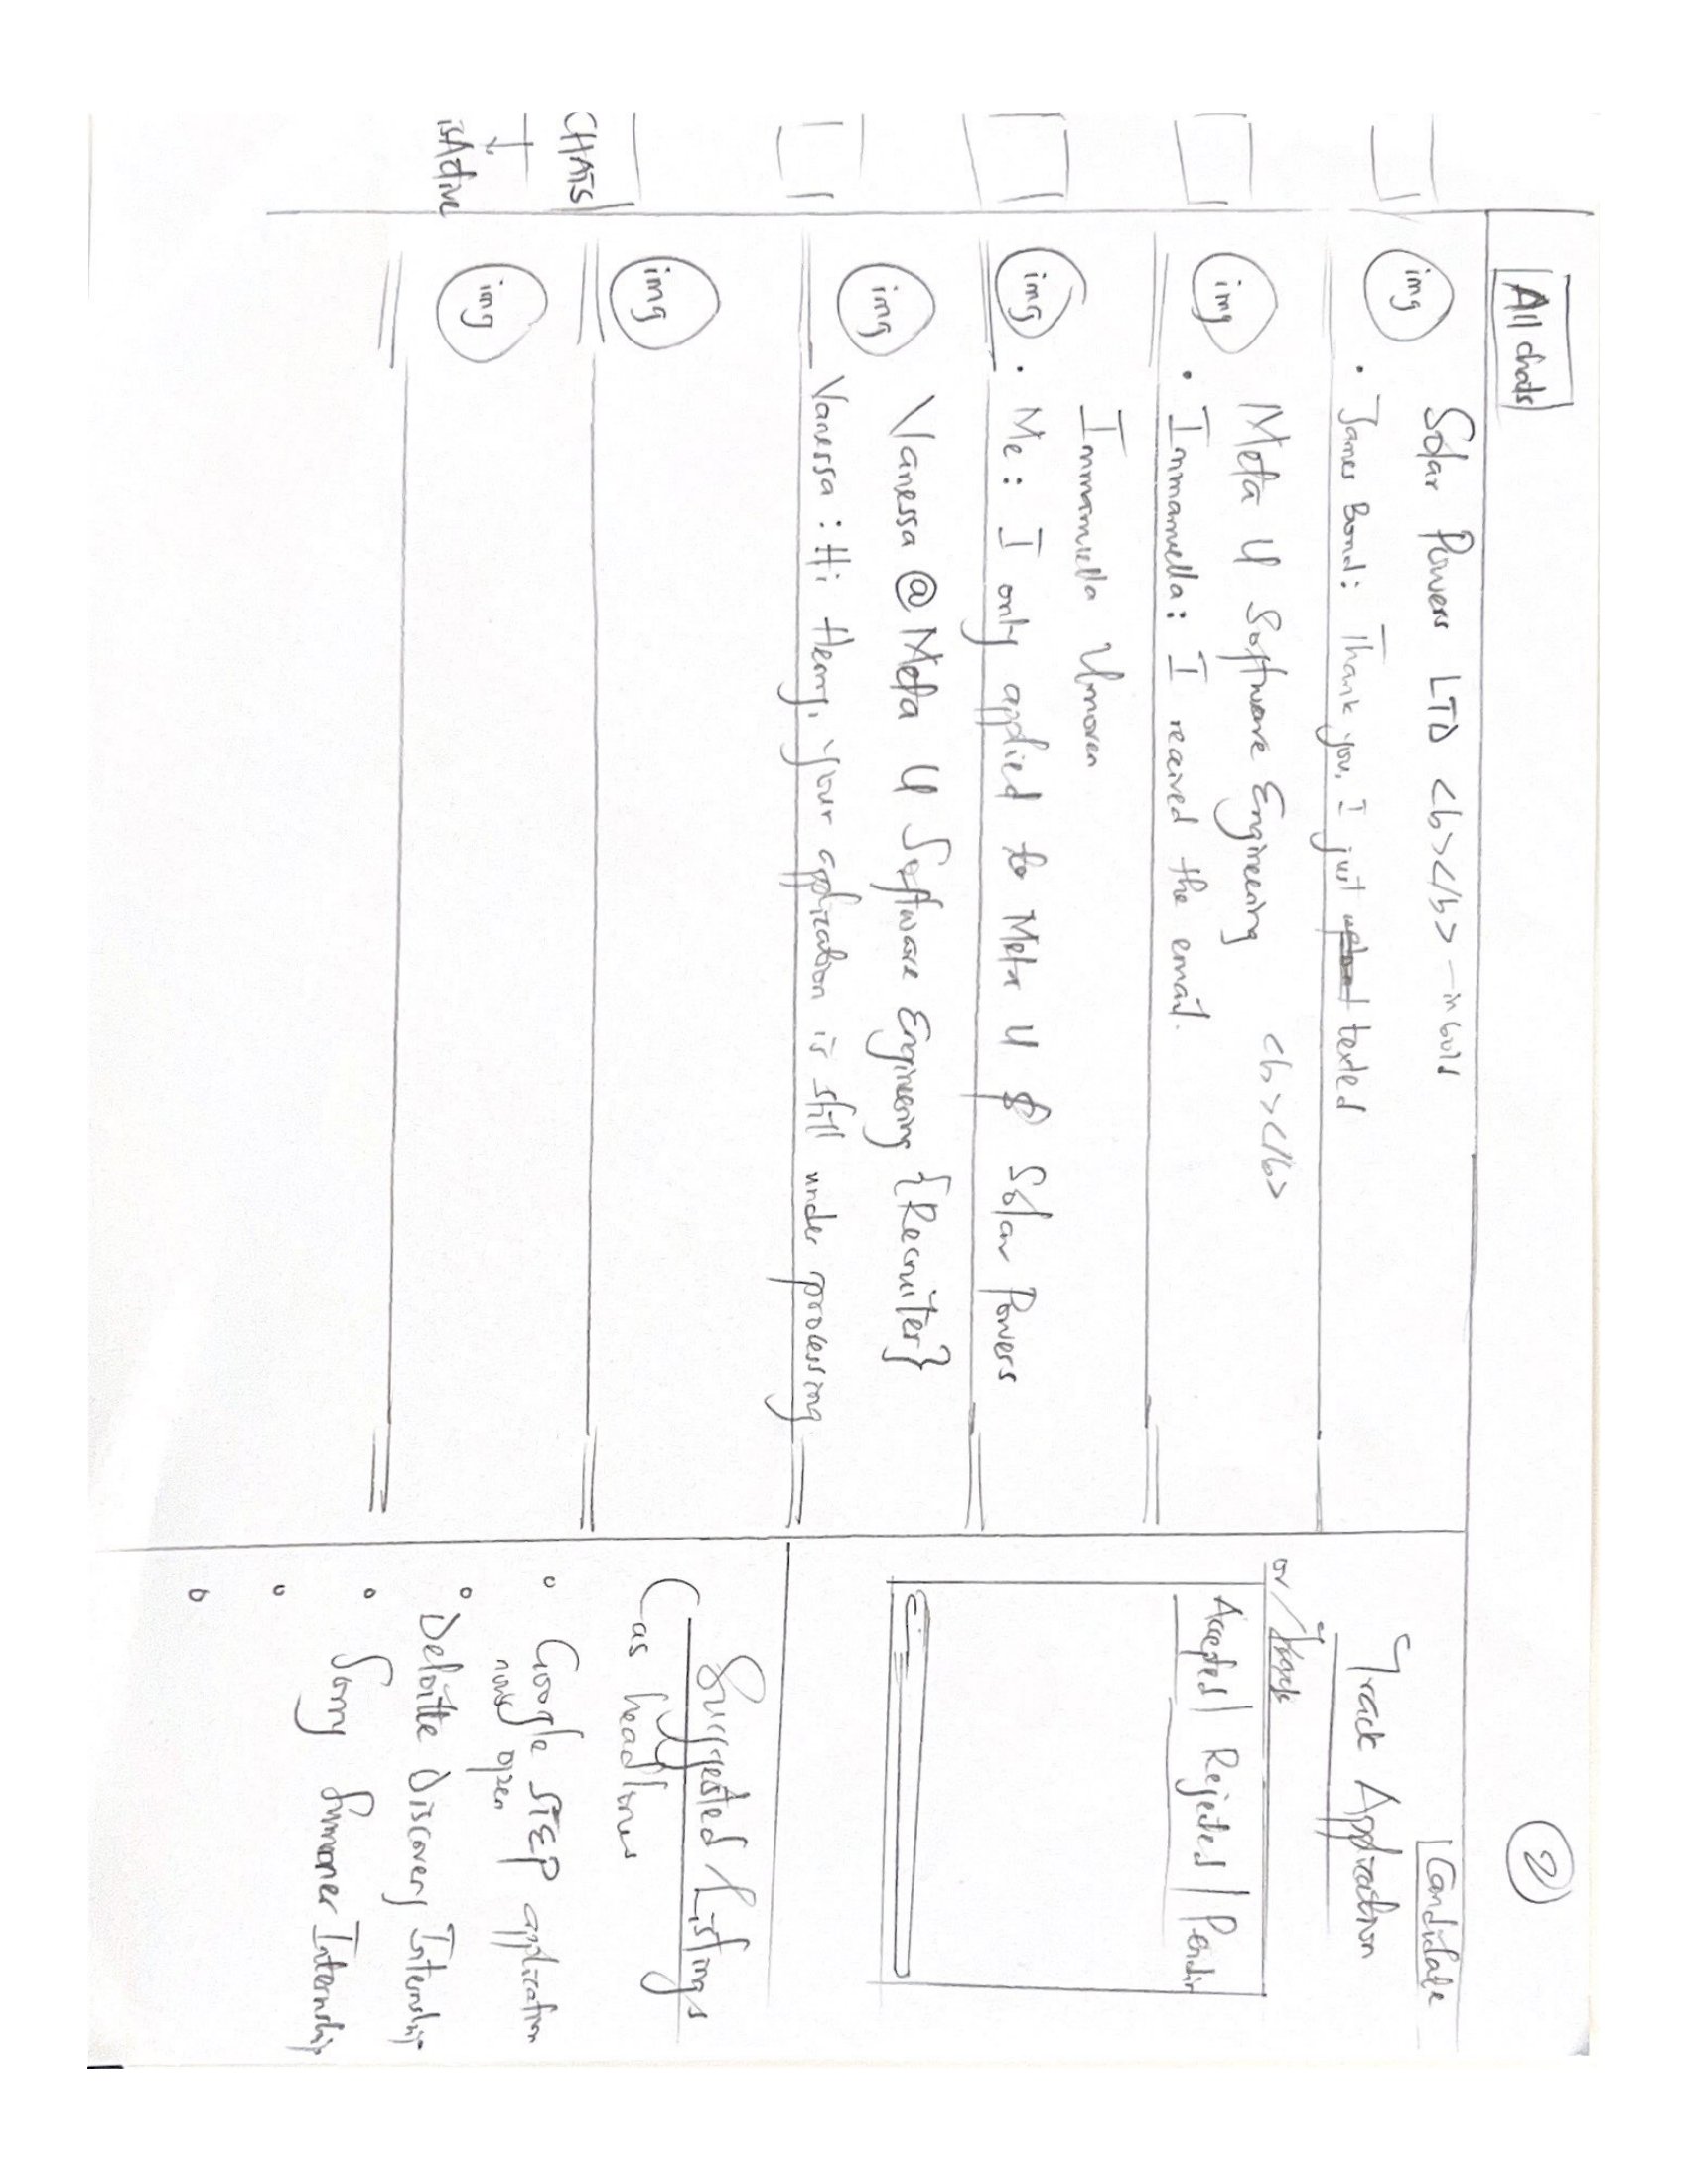 All chats
2
Candidate
Solar Powers LTD <b></b> - in bold
James Bond: Thank you, I just texted
Meta U Software Engineering <b></b>
Inmanuella: I received the email.
Inmanuella Umoren
Me: I only applied to Meta U & Solar Powers
Vanessa @ Meta U Software Engineering {Recruiter}
Vanessa: Hi Henry, your application is still under processing
img
img
img
img
img
img
CHATS
isActive
Track Application
or
Accepted | Rejected | Pendin
Suggested Listings
(as headlines
Google STEP application
now open
Deloitte Discovery Internship
Sony Summer Internship